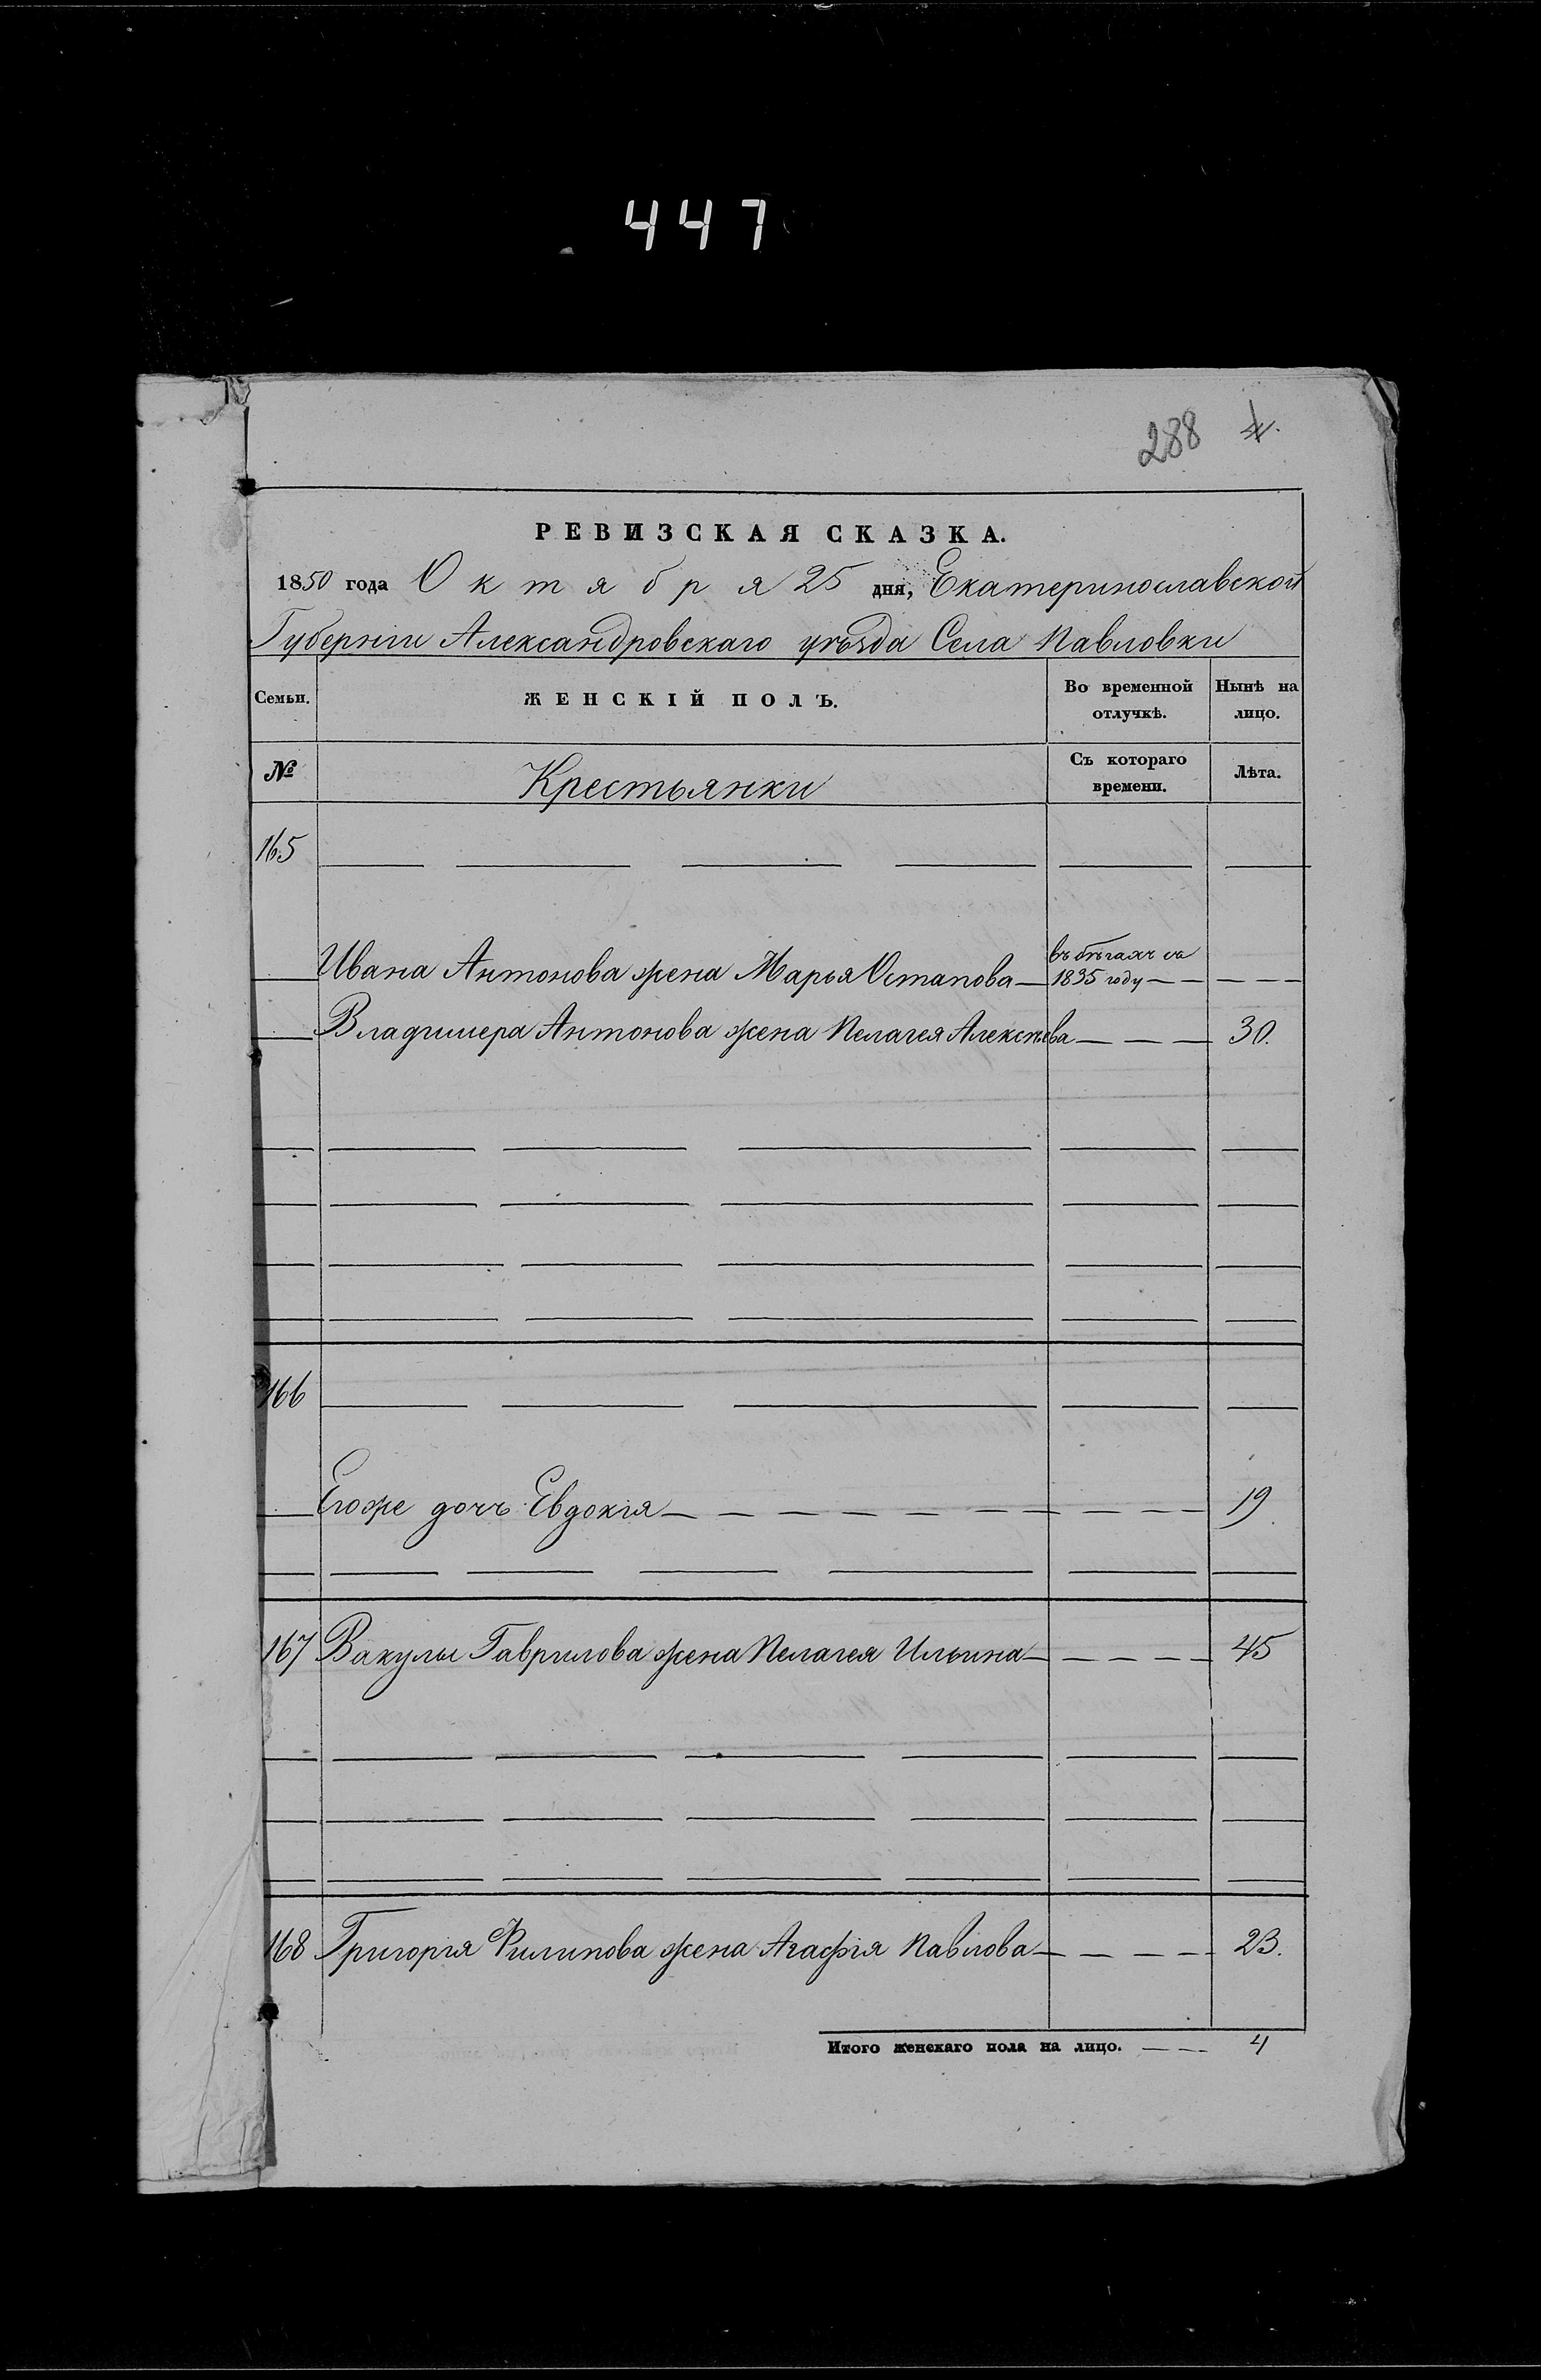 447
288 4.
РЕВИЗСКАЯ СКАЗКА.
1850 года Октября 25 дня, Екатеринославской
Губерніи Александровскаго уѣзда Села Павловки
Семьи. ЖЕНСКІЙ ПОЛЪ. Во временной отлучкѣ. Нынѣ на лицо.
№ Крестьянки Съ котораго времени. Лѣта.
165
Ивана Антонова жена Марья Остапова въ бѣгахъ съ 1835 году
Владимера Антонова жена Пелагея Алексѣева 30.
166
Егоже дочь Евдокія 19
167 Вакулы Гаврилова жена Пелагея Ильина 45
168 Григорія Филипова жена Агафія Павлова 23.
Итого женскаго пола на лицо. 4